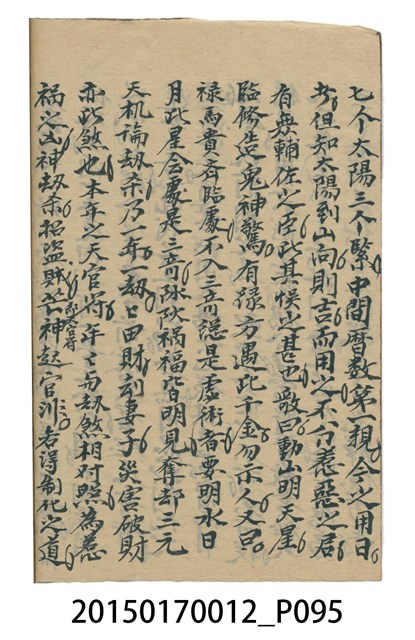 七个太陽三个緊中間曆数第一親今之用日
者但知太陽到山向則吉而用之不分善惡之居
有無輔佐之臣此其悮之甚也歌曰動山明天星
臨修造鬼神驚有祿方遇此千金勿示人又曰
祿馬貴斉臨處不入三竒總是虛術者要明水日
月此星会處是三竒陰陽禍福皆明見奪却三元
天机論劫杀乃一年一劫〻田財刻妻子災害破財
亦此煞也本年之天官符年〻与劫煞相对照為惹
禍之凶神劫杀招盜賊天官符若神赶官訟若得制化之道
20150170012_P095